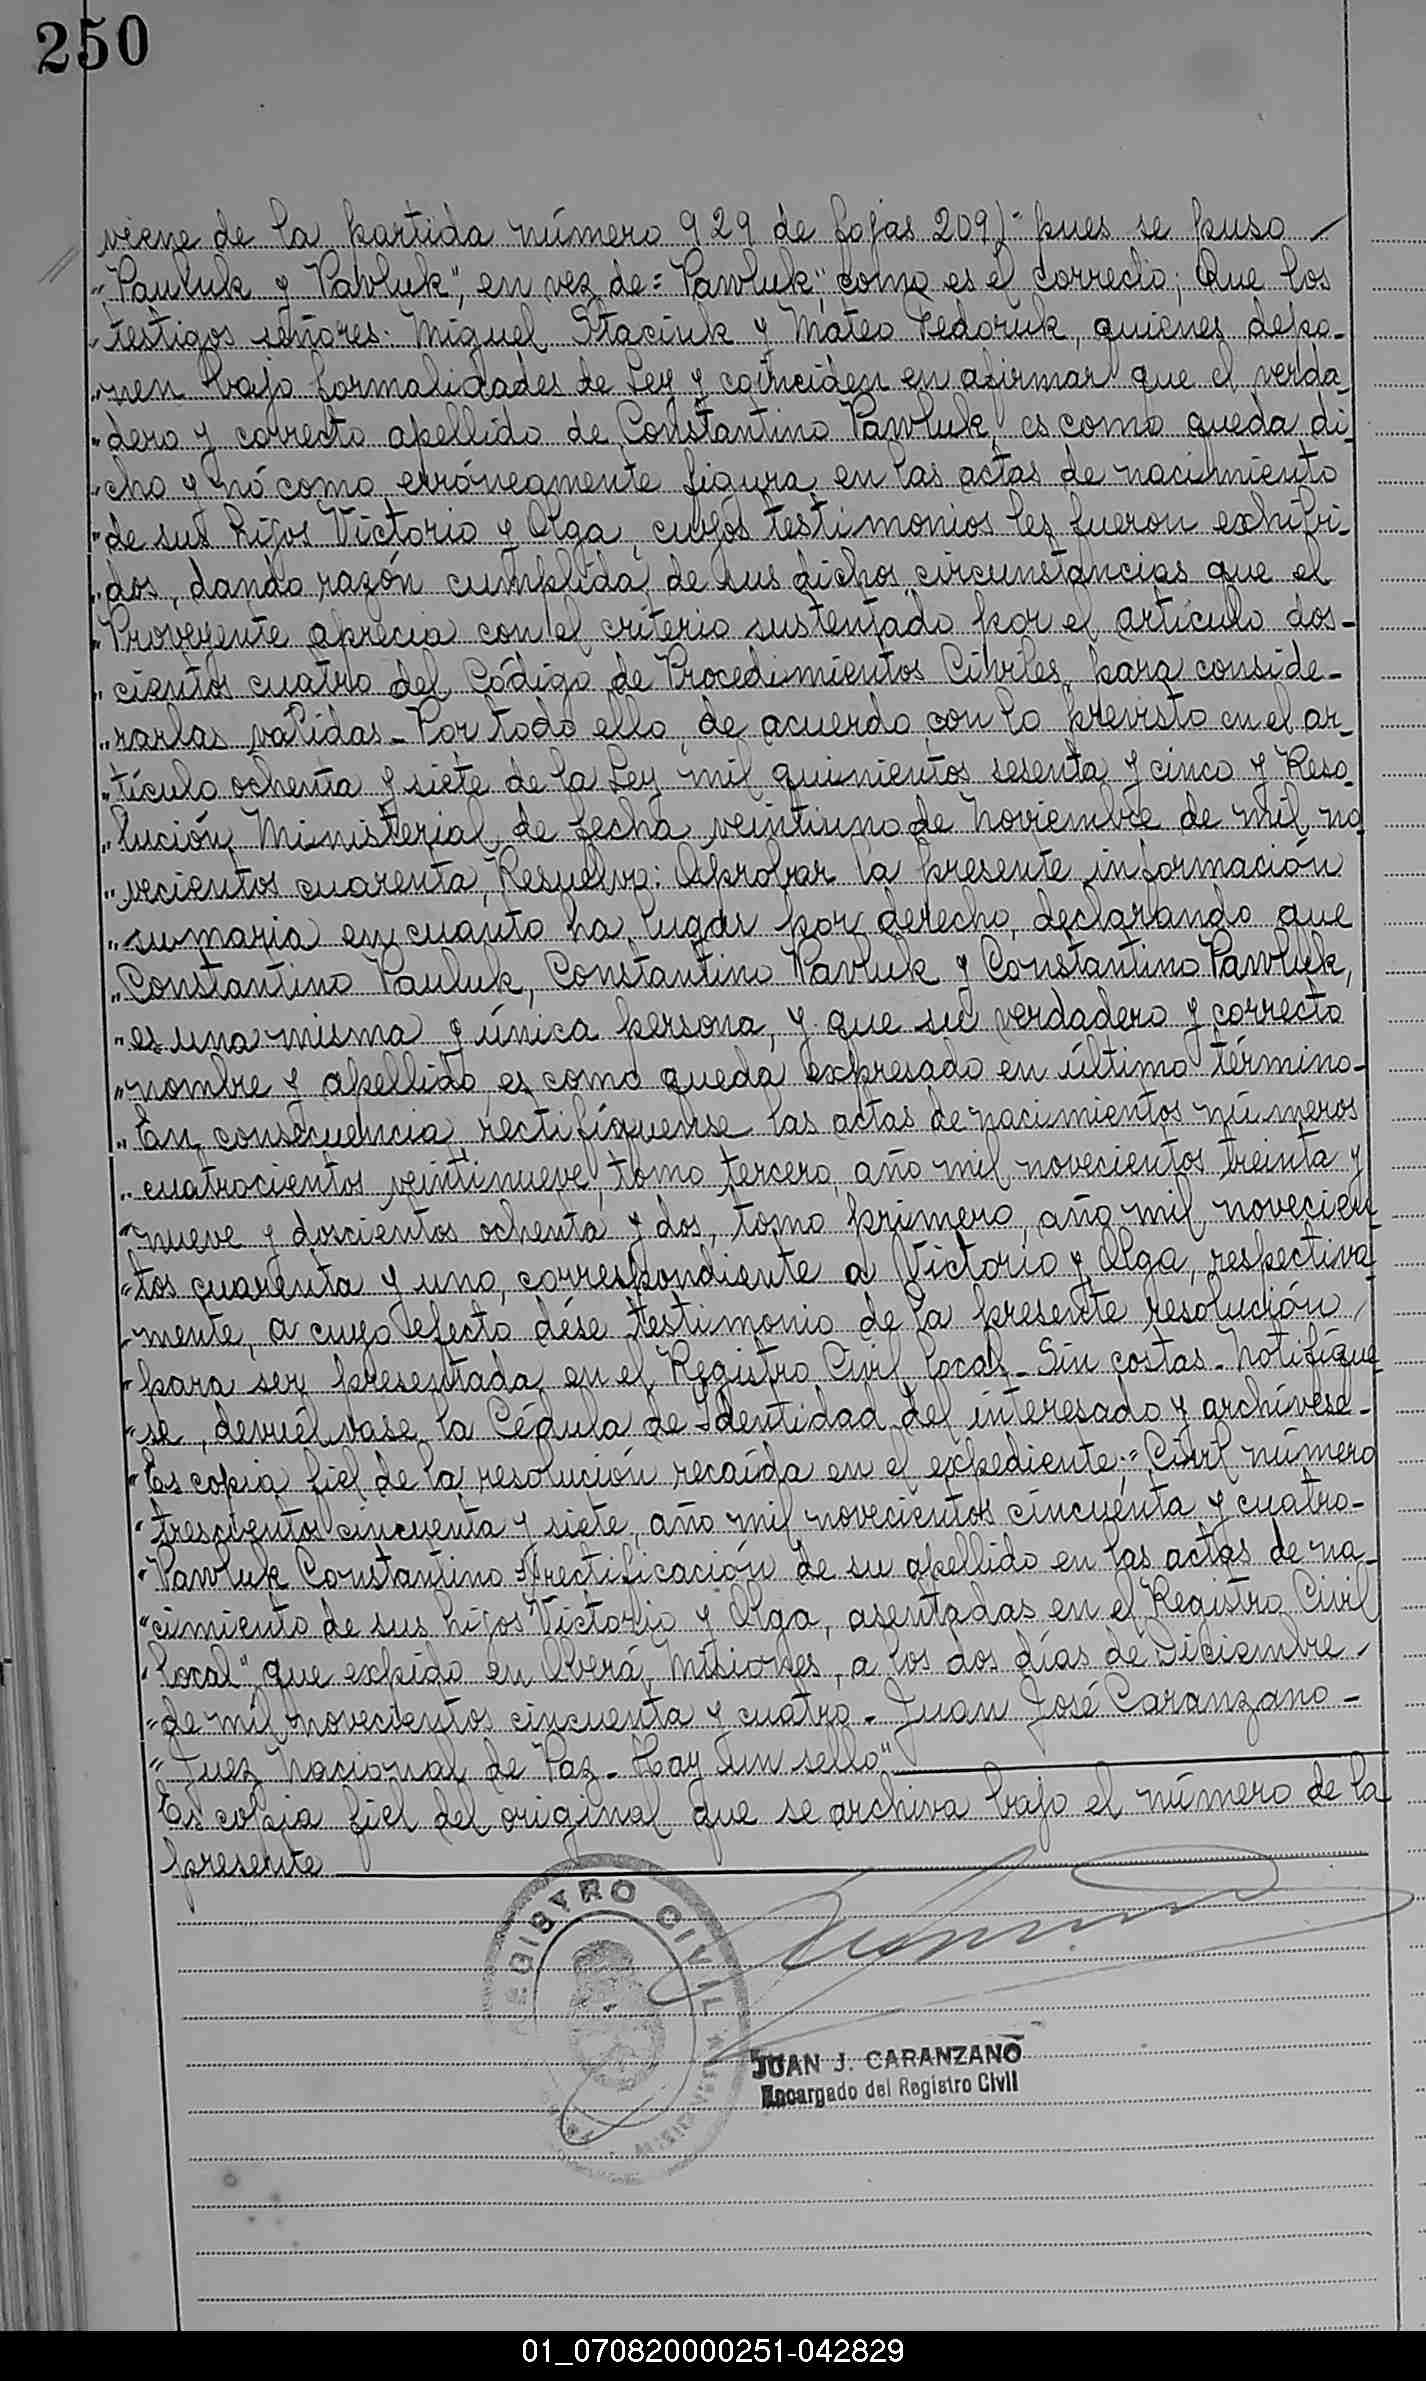 250
viene de la partida número 929 de fojas 209)- pues se puso
"Pauluk y Pavluk", en vez de= "Pawluk", como es el correcto; Que los
testigos señores: Miguel Staciuk y Mateo Fedoruk, quienes depo-
nen bajo formalidades de Ley y coinciden en afirmar que el verda-
"dero y correcto apellido de Constantino Pawluk, es como queda di-
"cho y nó como erróneamente figura en las actas de nacimiento
"de sus hijos Victorio y Olga, cuyos testimonios les fueron exhibi-
"dos, dando razón cumplida de sus dichos, circunstancias que el
"Proveyente aprecia con el criterio sustentado por el artículo dos-
"cientos cuatro del Código de Procedimientos Civiles, para conside-
"rarlas válidas.- Por todo ello, de acuerdo con lo previsto en el ar-
"tículo ochenta y siete de la Ley mil quinientos sesenta y cinco y Reso-
"lución Ministerial de fecha veintiuno de Noviembre de mil no
"vecientos cuarenta, Resuelvo: Aprobar la presente información
"sumaria en cuanto ha lugar por derecho, declarando que
"Constantino Pauluk, Constantino Pavluk y Constantino Pawluk,
"es una misma y única persona, y que su verdadero y correcto
"nombre y apellido es como queda expresado en último término-
"En consecuencia rectifíquense las actas de nacimientos números
"cuatrocientos veintinueve, tomo tercero, año mil novecientos treinta y
"nueve y doscientos ochenta y dos, tomo primero, año mil novecien
"tos cuarenta y uno, correspondiente a Victorio y Olga, respectiva
"mente, a cuyo efecto dése testimonio de la presente resolución,
"para ser presentada en el Registro Civil local.- Sin costas.- Notifíque
"se, devuélvase la Cédula de Identidad del interesado y archívese.-
"Es copia fiel de la resolución recaída en el expediente:= "Civil número
"trescientos cincuenta y siete, año mil novecientos cincuenta y cuatro-
"Pawluk Constantino s/rectificación de su apellido en las actas de na-
"cimiento de sus hijos Victorio y Olga, asentadas en el Registro Civil
"local" que expido en Oberá, Misiones, a los dos días de Diciembre
"de mil novecientos cincuenta y cuatro.- Juan José Caranzano -
"Juez Nacional de Paz.- Hay un sello"
Es copia fiel del original que se archiva bajo el número de la
presente
REGISTRO CIVIL
JUAN J. CARANZANO
Encargado del Registro Civil
01_070820000251-042829